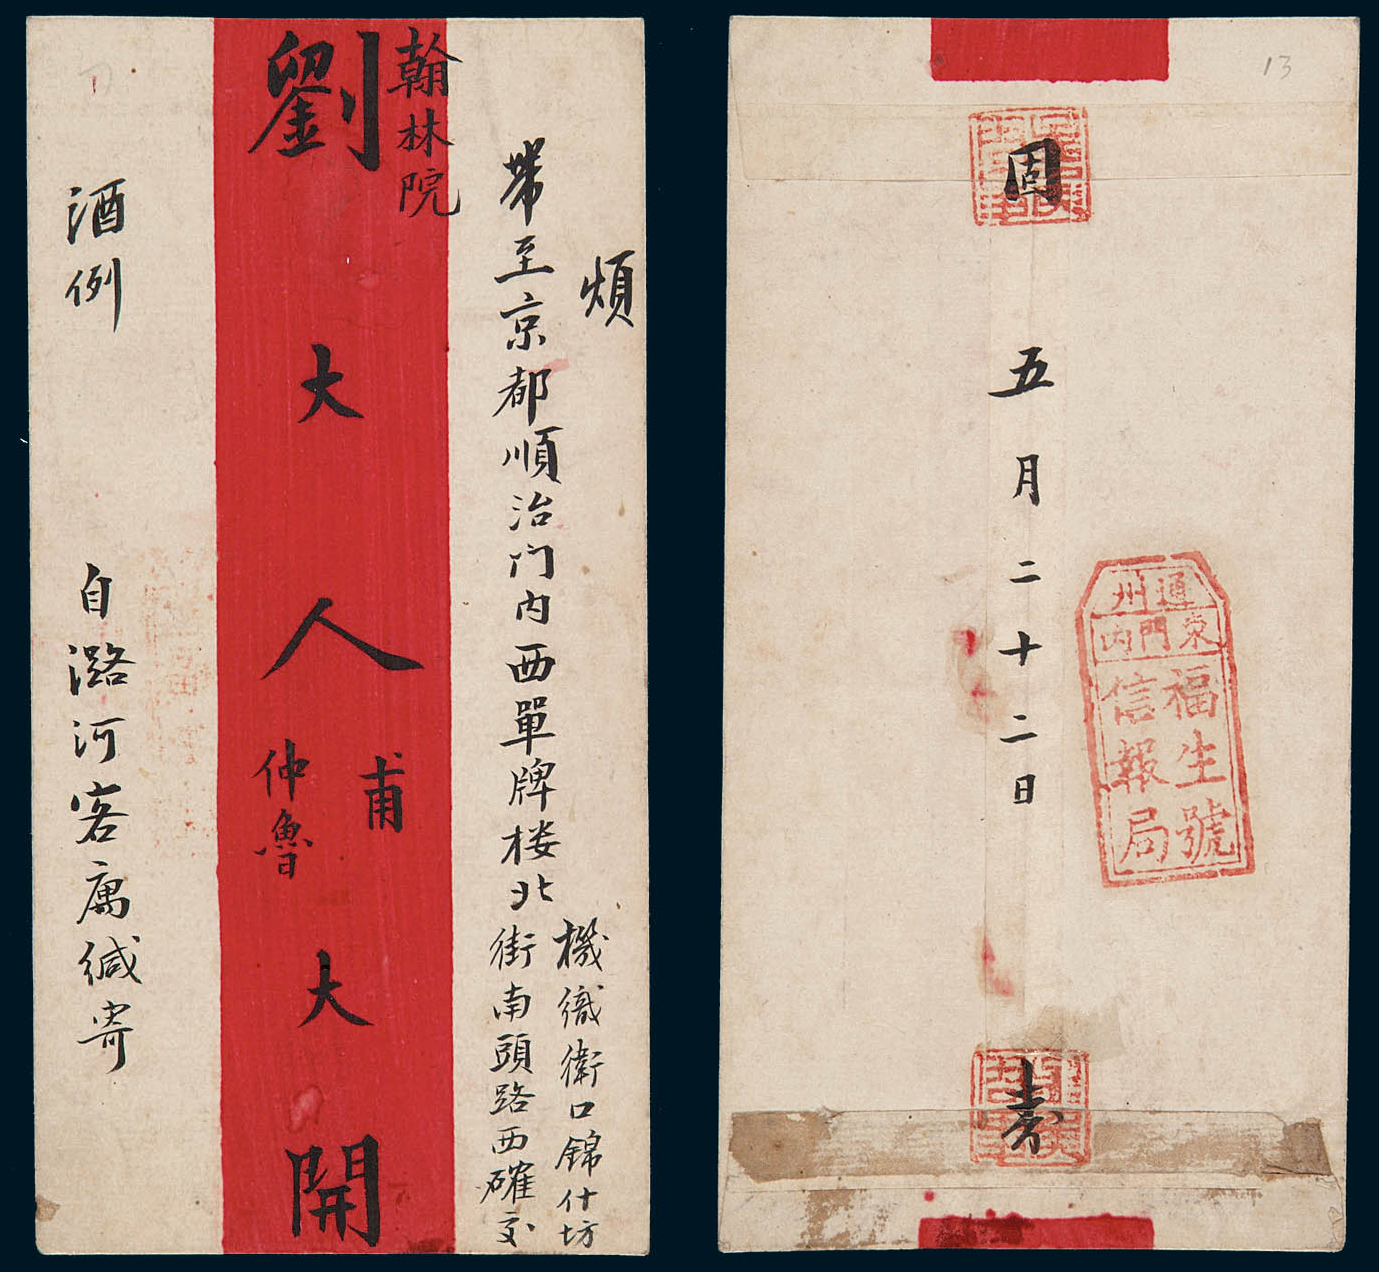 煩
帶至京都順治門内西單牌楼北
機織衛口錦什坊
街南頭路西確交
翰林院
劉大人
甫
仲魯
大開
酒例
自潞河客寓緘寄
13
固
五月二十二日
通州
東門内
福生號
信報局